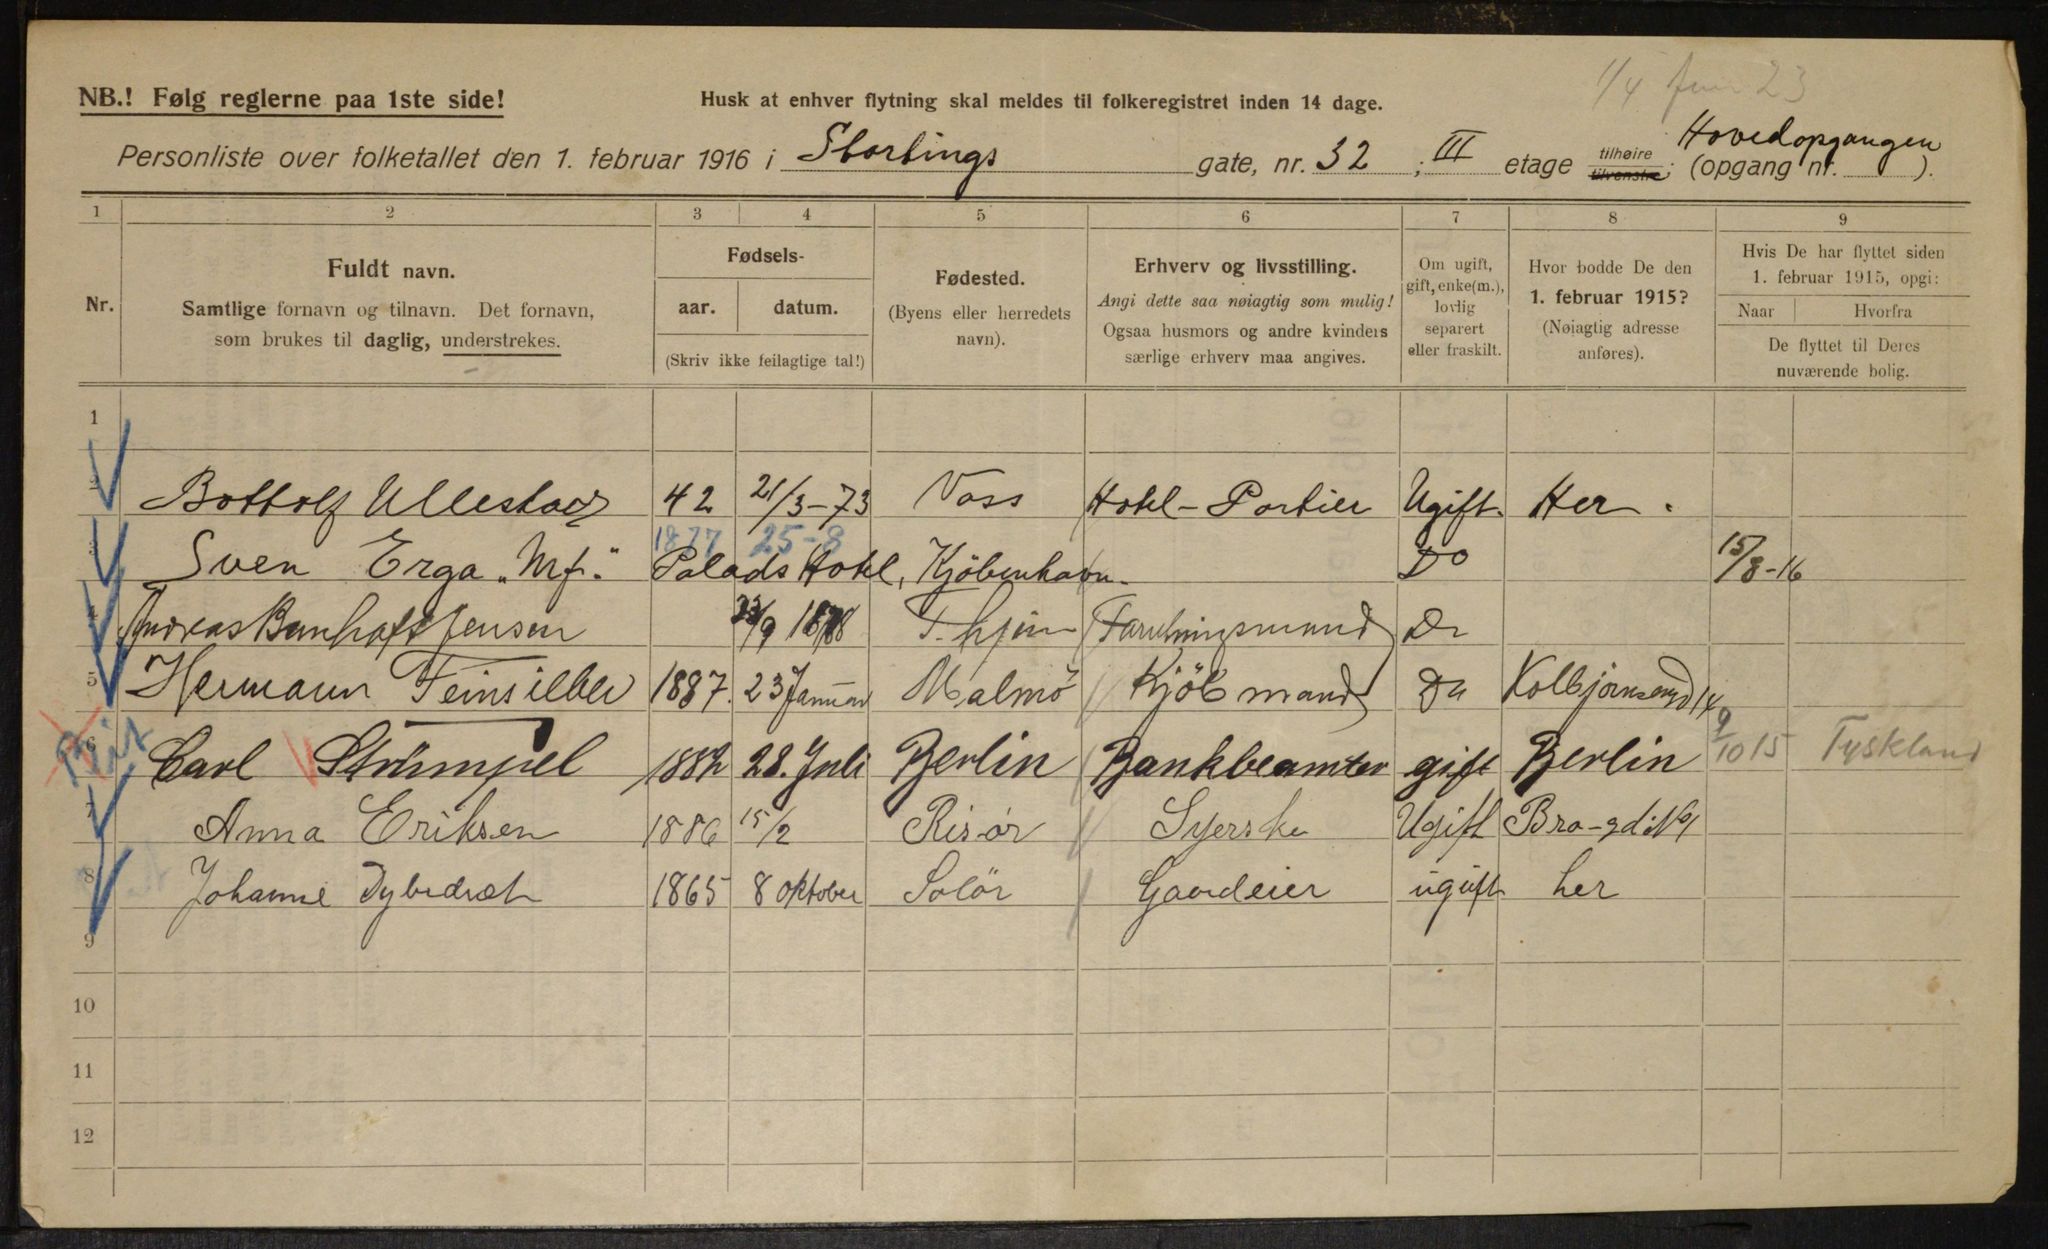 1/4 23
NB.! Følg reglerne paa 1ste side!
Husk at enhver flytning skal meldes til folkeregistret inden 14 dage.
Hovedopgangen
Personliste over folketallet den 1. februar 1916 i Stortings gate, nr. 32 ; III etage tilhøire tilvenstre; (opgang nr. ).
1 2 3 4 5 6 7 8 9
Nr.
Fuldt navn.
Samtlige fornavn og tilnavn. Det fornavn,
som brukes til daglig, understrekes.
Fødsels-
aar. datum.
(Skriv ikke feilagtige tal!)
Fødested.
(Byens eller herredets
navn).
Erhverv og livsstilling.
Angi dette saa nøiagtig som mulig!
Ogsaa husmors og andre kvinders
særlige erhverv maa angives.
Om ugift,
gift, enke(m.),
lovlig
separert
eller fraskilt.
Hvor bodde De den
1. februar 1915?
(Nøiagtig adresse
anføres).
Hvis De har flyttet siden
1. februar 1915, opgi:
Naar Hvorfra
De flyttet til Deres
nuværende bolig.
1
2 Bottolf Ullestad 42 21/3-73 Voss Hotel-Portier Ugift. Her.
1877 25-8
3 Sven Erga „Mf." Palads Hotel, Kjöbenhavn. Do 15/8-16
4 Andreas Jensen /9 T.hjem Do
5 Hermann Feinsilber 1887. 23 Januar Malmö Kjöbmand Do Kolbjørnsensgd 14
6 Carl Strümpel 1882 28. Juli Berlin Bankbeamter gift Berlin 9/10 15 Tyskland
7 Anna Eriksen 1886 15/2 Risör Syerske Ugift
8 Johanne Dybedræt 1865 8 oktober Solör ugift her
9
10
11
12